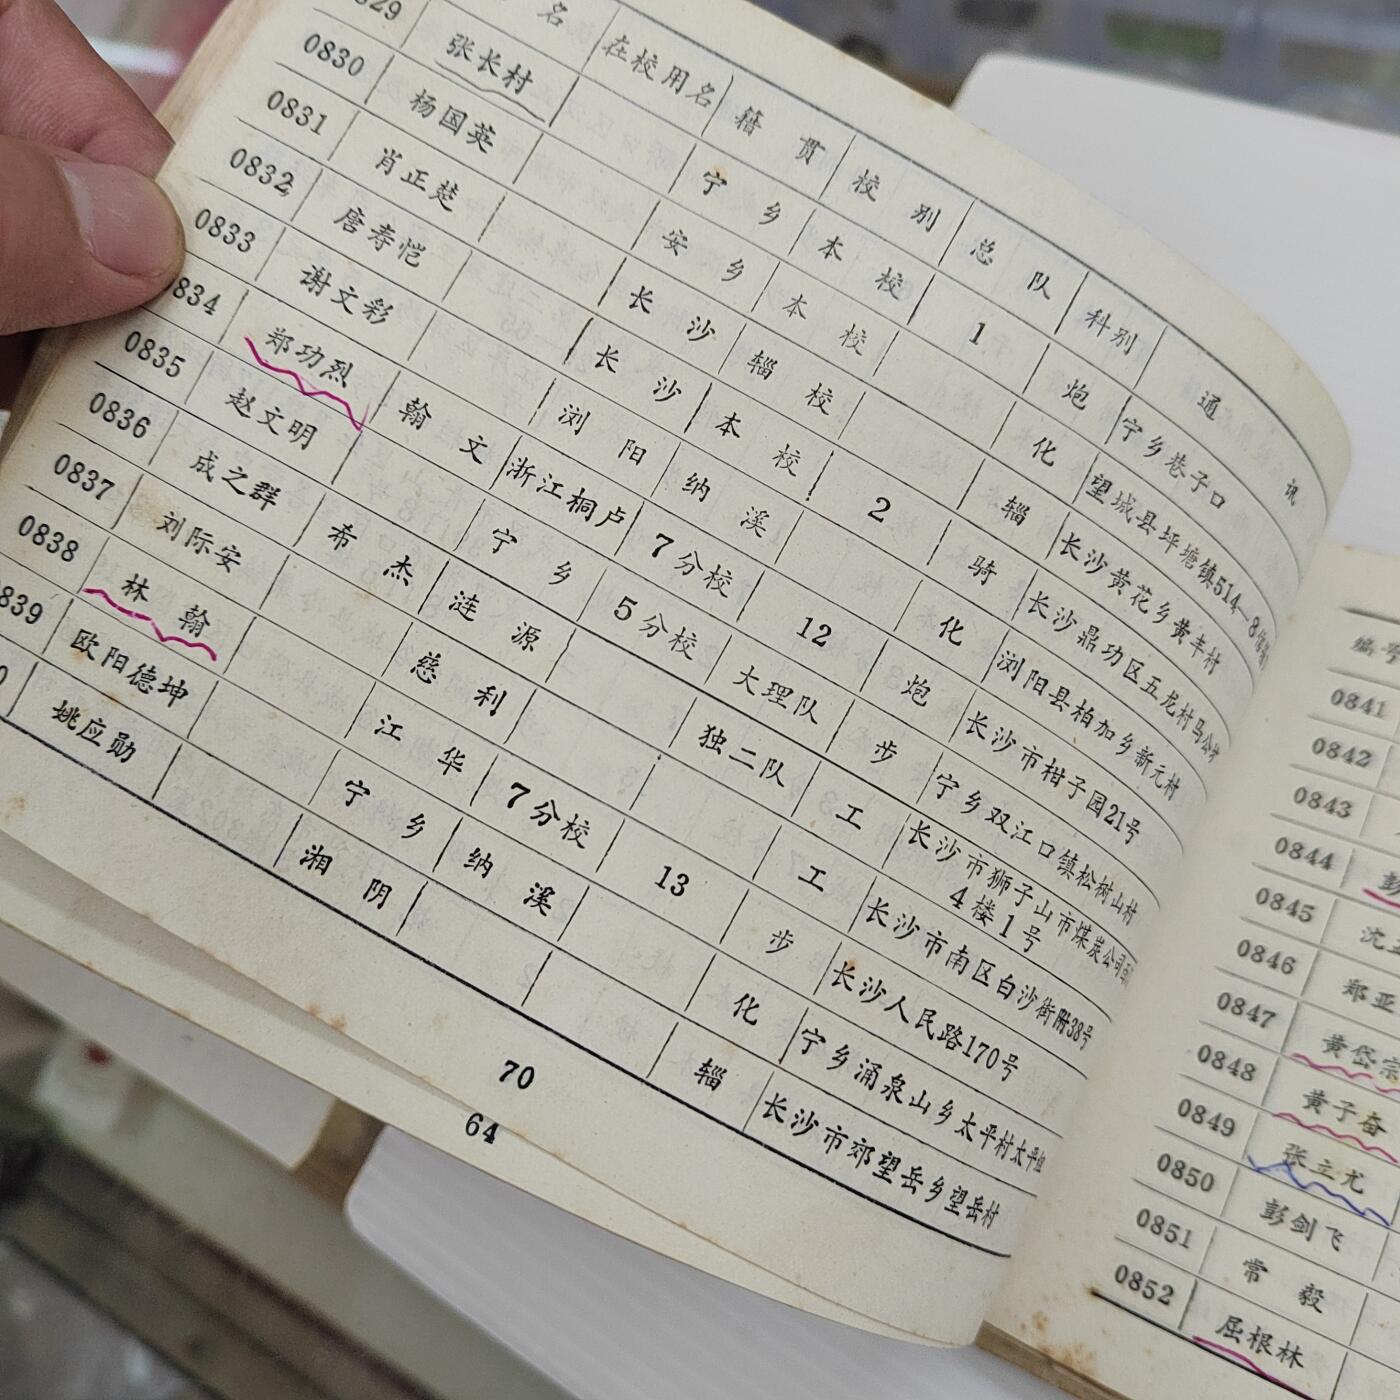 名 在校用名 籍贯 校别 总队 科别 通讯
29 张长村 宁乡 本校 1 炮 宁乡巷子口
0830 杨国英 安乡 本校 化 望城县坪塘镇514—8
0831 肖正楚 长沙 辎校 辎 长沙黄花乡黄丰村
0832 唐寿恺 长沙 本校 2 骑 长沙鼎功区五龙村马公
0833 谢文彩 浏阳 纳溪 化 浏阳县柏加乡新元村
834 郑功烈 翰文 浙江桐卢 7分校 12 炮 长沙市柑子园21号
0835 赵文明 宁乡 5分校 大理队 步 宁乡双江口镇松树山村
0836 成之群 希杰 涟源 独二队 工 长沙市狮子山市煤炭公司
4楼1号
0837 刘际安 慈利 工 长沙市南区白沙街附38号
0838 林翰 江华 7分校 13 步 长沙人民路170号
839 欧阳德坤 宁乡 纳溪 化 宁乡涌泉山乡太平村太平组
0 姚应勋 湘阴 辎 长沙市郊望岳乡望岳村
70
64
编号
0841
0842
0843
0844 彭
0845 沈
0846 郑亚
0847 黄岱宗
0848 黄子奋
0849 张立尤
0850 彭剑飞
0851 常毅
0852 屈根林